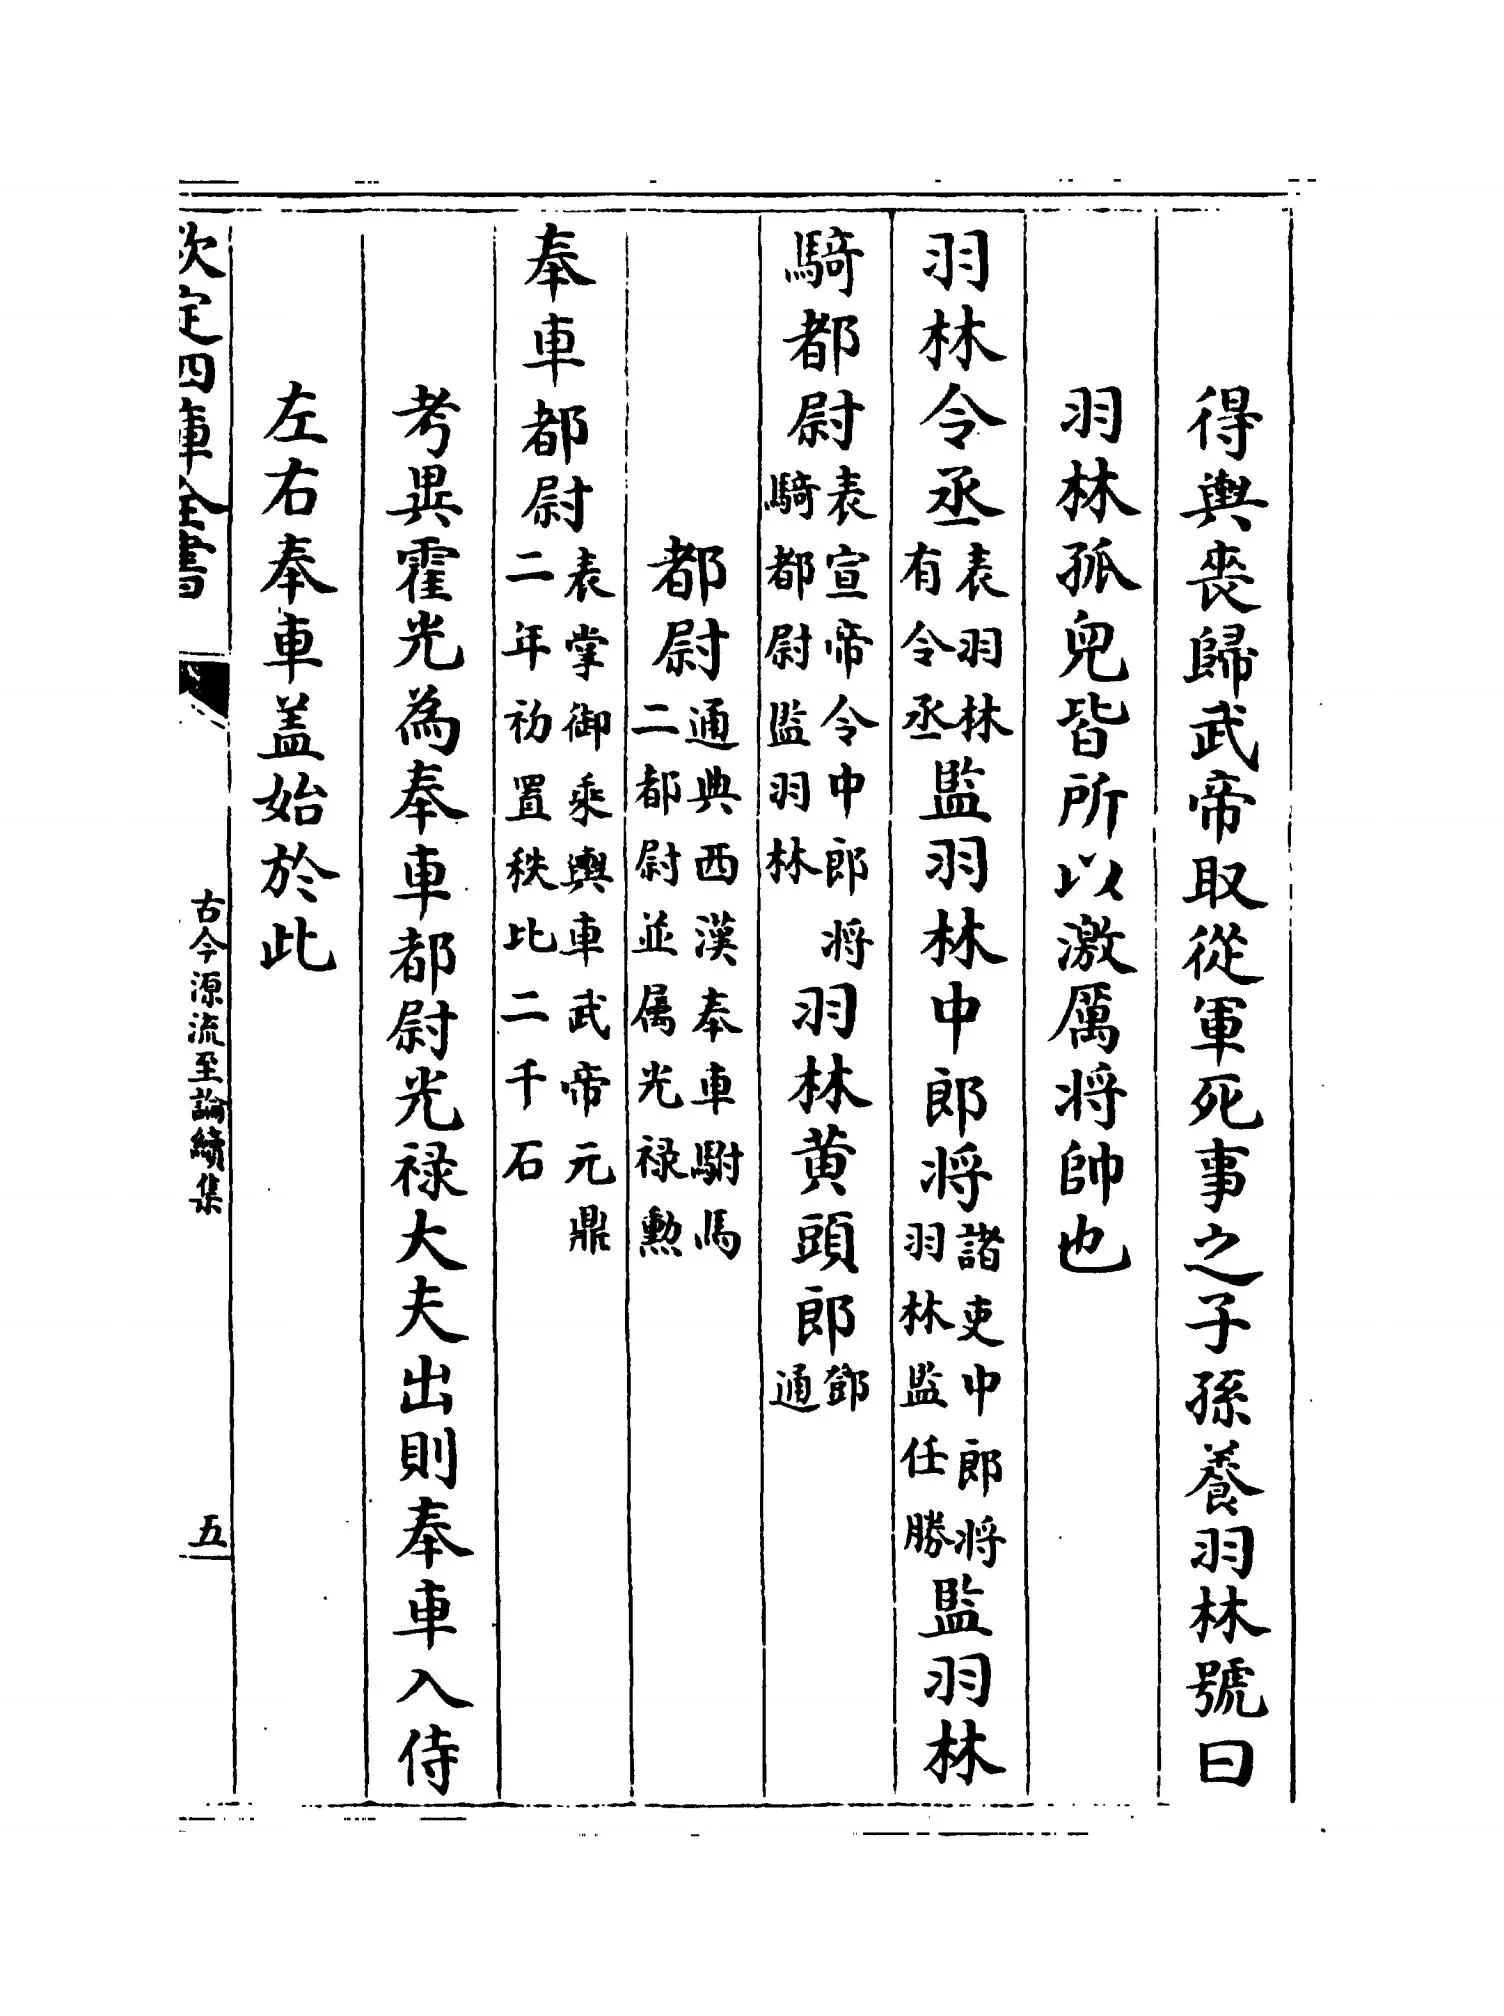 得輿喪歸武帝取從軍死事之子孫養羽林號曰
羽林孤兒皆所以激厲将帥也
羽林令丞表羽林有令丞監羽林中郎将諸吏中郎将羽林監任勝監羽林
騎都尉表宣帝令中郎将騎都尉監羽林羽林黄頭郎鄧通
都尉通典西漢奉車駙馬二都尉並属光禄勲
奉車都尉表掌御乘輿車武帝元鼎二年初置秩比二千石
考異霍光為奉車都尉光禄大夫出則奉車入侍
左右奉車盖始於此
欽定四庫全書
古今源流至論續集
五